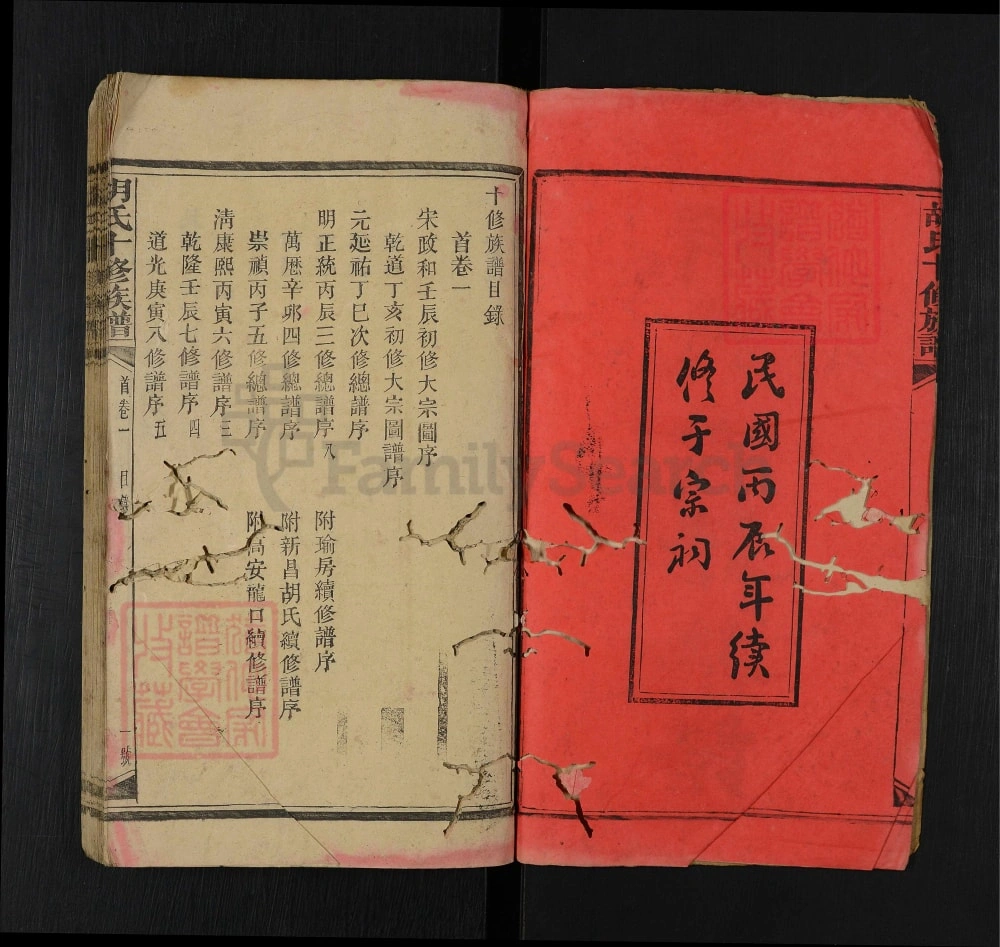 胡氏十修族譜
民國丙辰年續
修于宗祠
十修族譜目錄
首卷一
宋政和壬辰初修大宗圖序
乾道丁亥初修大宗圖譜序
元延祐丁巳次修總譜序
明正統丙辰三修總譜序八 附瑜房續修譜序
萬厯辛卯四修總譜序 附新昌胡氏續修譜序
崇禎丙子五修總譜序 附高安龍口續修譜序
清康熙丙寅六修譜序三
乾隆壬辰七修譜序四
道光庚寅八修譜序五
胡氏十修族譜 首卷一 目錄 一號
FamilySearch